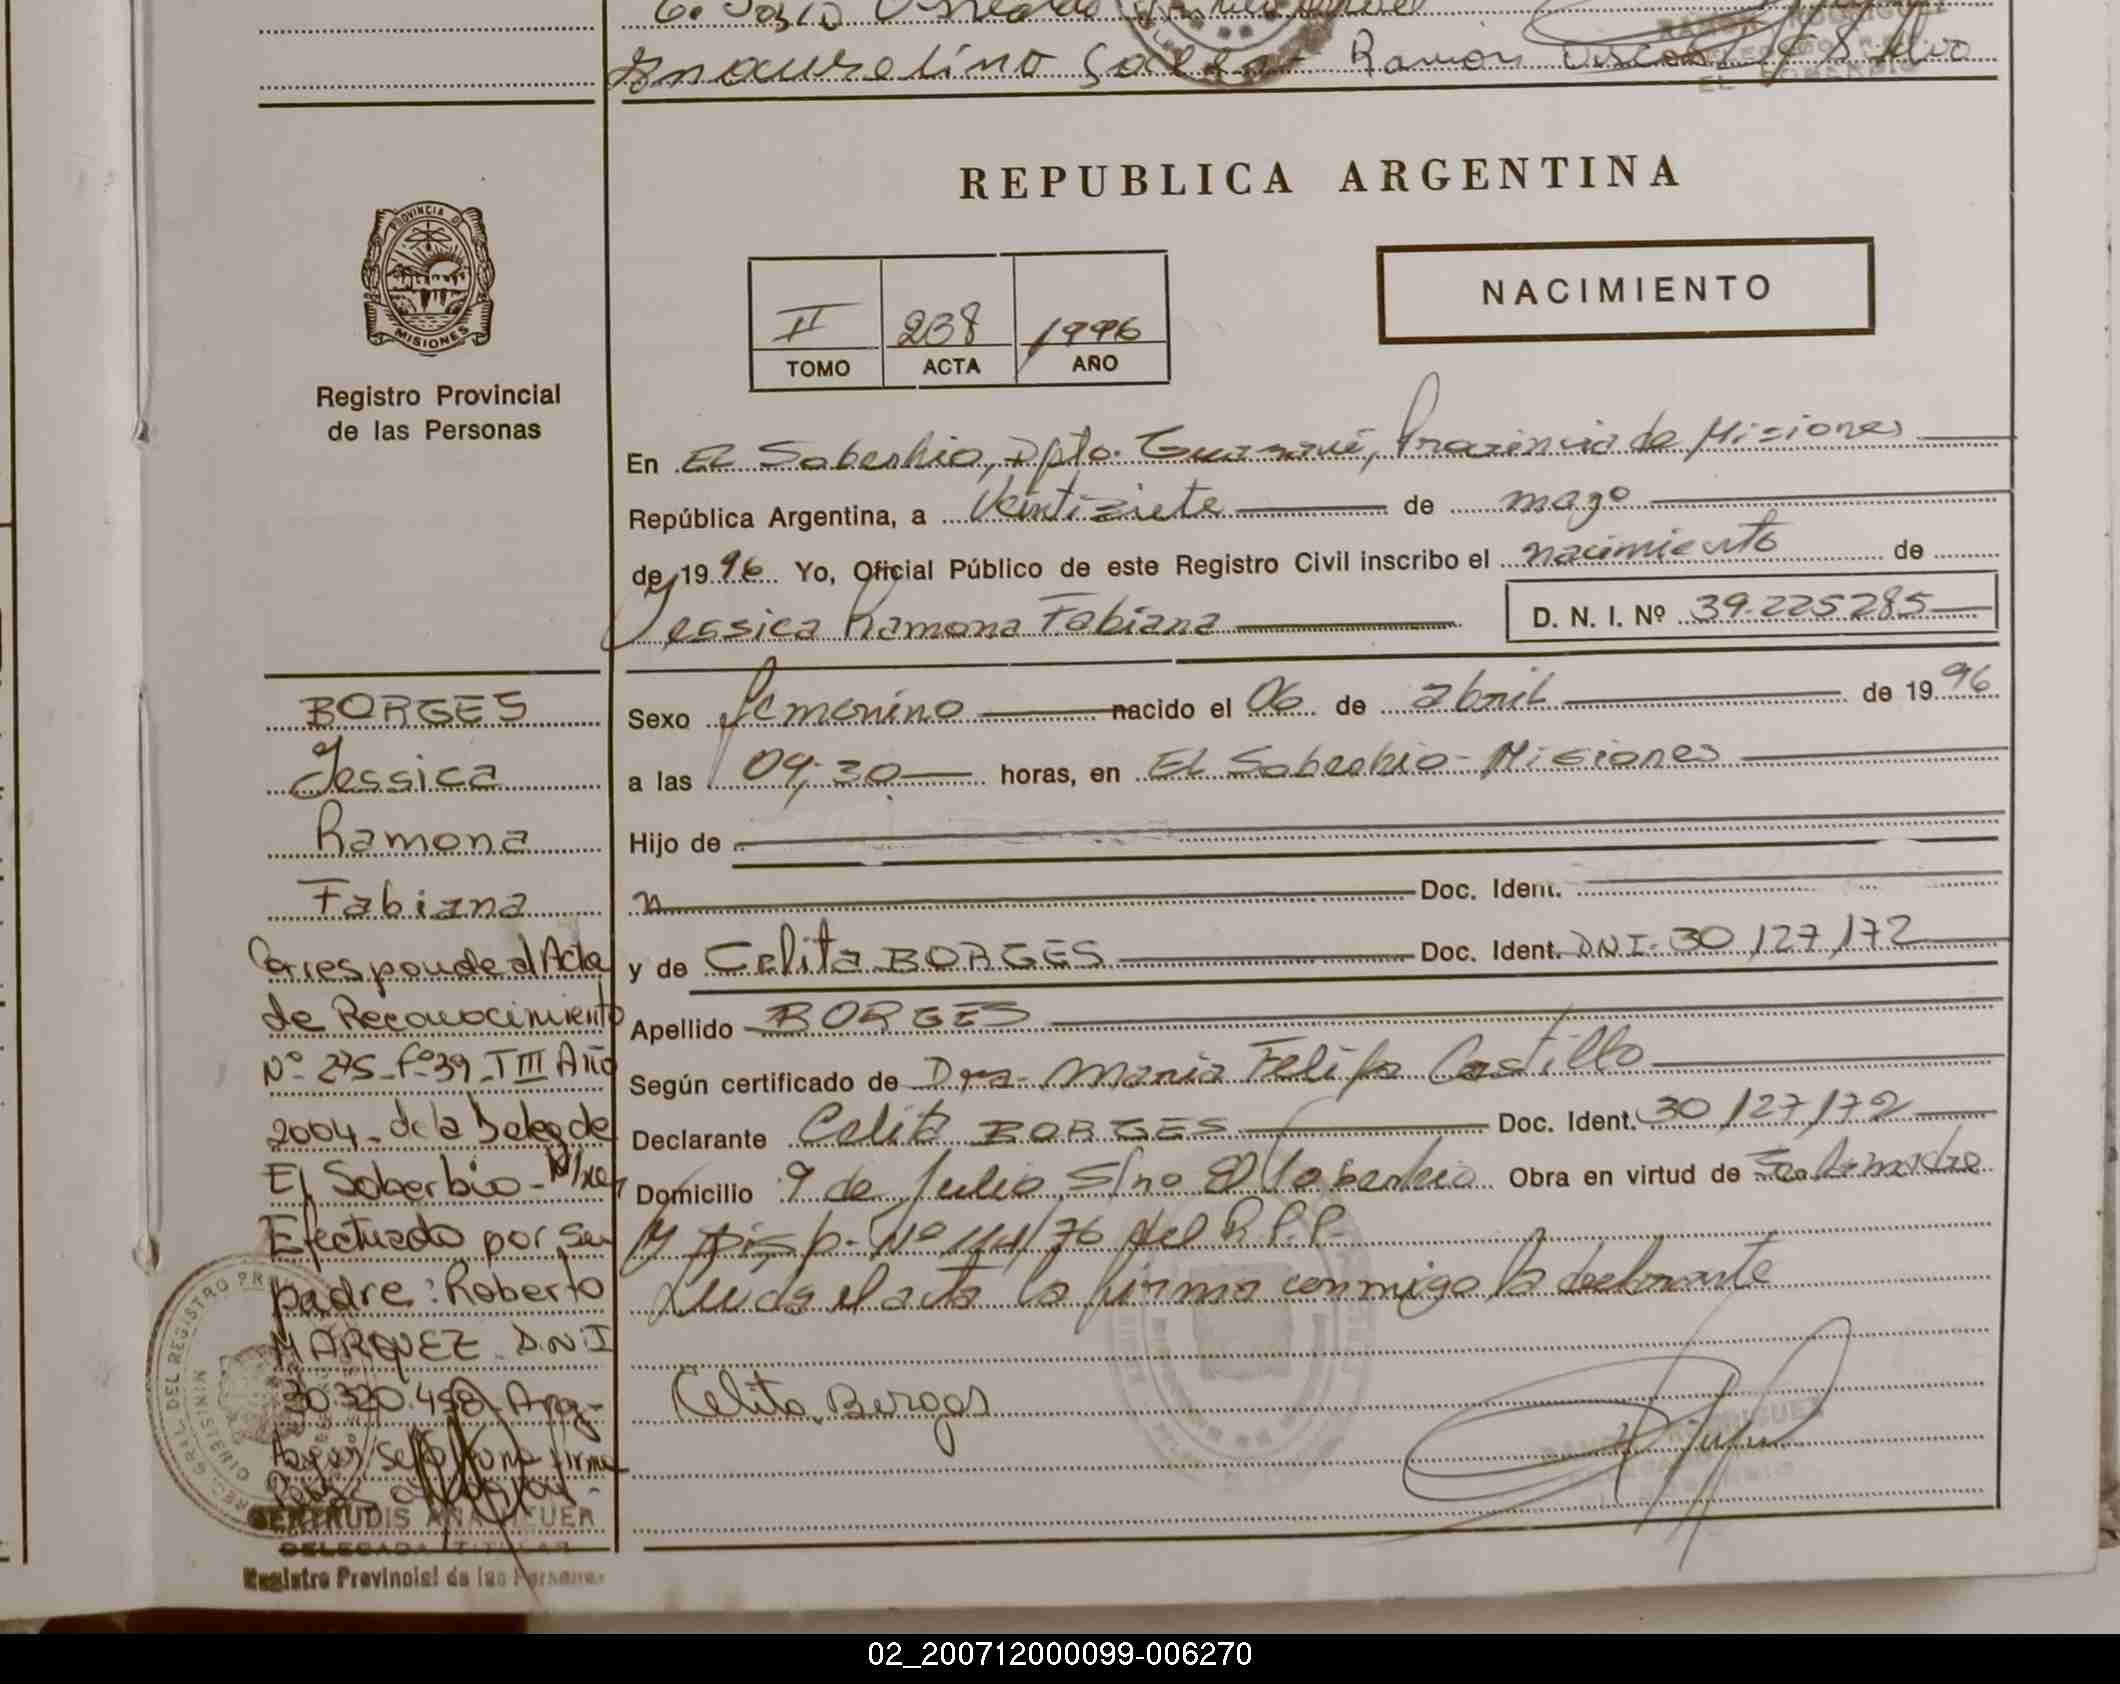 Ramón
REPUBLICA ARGENTINA
PROVINCIA DE
MISIONES
NACIMIENTO
II 238 1996
TOMO ACTA AÑO
Registro Provincial
de las Personas
En El Soberbio, Dpto. Guaraní, Provincia de Misiones
República Argentina, a Veintisiete de mayo
de 1996 Yo, Oficial Público de este Registro Civil inscribo el nacimiento de
Jessica Ramona Fabiana D. N. I. Nº 39.225285
Sexo femenino nacido el 06 de abril de 1996
a las 09,30 horas, en El Soberbio - Misiones
Hijo de
Doc. Ident.
y de Celita BORGES Doc. Ident. DNI. 30/127/172
Apellido BORGES
Según certificado de Dra. Maria Felipa Castillo
Declarante Celita BORGES Doc. Ident. 30/127/172
Domicilio 9 de Julio S/no El Soberbio Obra en virtud de
del R.P.P.
Leida el acta la firma conmigo la declarante
Celita Borges
BORGES
Jessica
Ramona
Fabiana
Corresponde al Acta
de Reconocimiento
Nº 275 - Fº 39 - T III Año
2004 - de la Deleg de
El Soberbio - Mnes
Efectuado por su
padre: Roberto
MARQUEZ D.N.I
30.320.498 Arg-
GERTRUDIS
DELEGADA TITULAR
Registro Provincial de las Personas
02_200712000099-006270